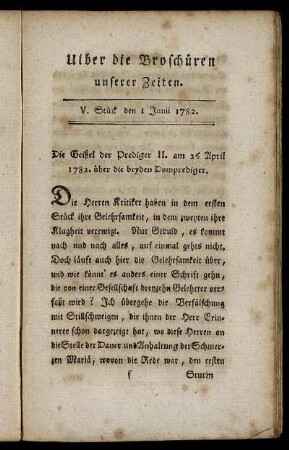 Uiber die Broschüren
unserer Zeiten.
V. Stück den 1 Junii 1782.
Die Geißel der Prediger II. am 26 April
1782. über die beyden Domprediger.
Die Herren Kritiker haben in dem ersten
Stück ihre Gelehrsamkeit, in dem zweyten ihre
Klugheit verewigt. Nur Geduld, es kommt
nach und nach alles, auf einmal gehts nicht.
Doch läuft auch hier die Gelehrsamkeit über,
und wie könnt' es anders einer Schrift gehn,
die von einer Gesellschaft dreyzehn Gelehrter ver-
faßt wird? Ich übergehe die Verfälschung
mit Stillschweigen, die ihnen der Herr Erin-
nerer schon dargezeigt hat, wo diese Herren an
die Stelle der Dauer und Anhaltung der Schmer-
zen Mariä, wovon die Rede war, den ersten
f Sturm